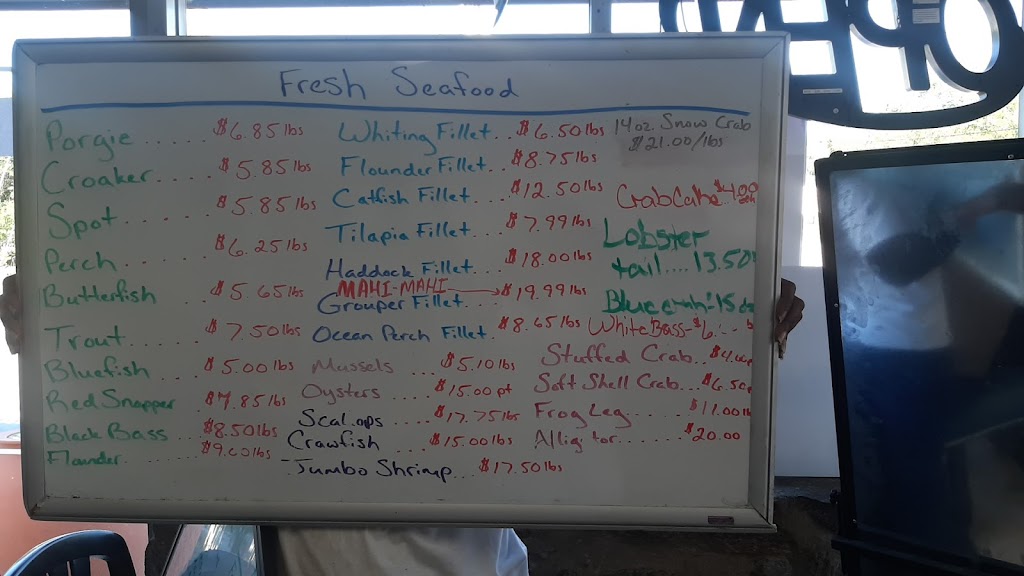 OPEN
Fresh Seafood
Porgie ..... $6.85 lbs
Croaker..... $5.85 lbs
Spot...... $5.85 lbs
Perch ...... $6.25 lbs
Butterfish .. $5.65 lbs
Trout....... $7.50 lbs
Bluefish .... $5.00 lbs
Red Snapper .. $7.85 lbs
Black Bass ... $8.50 lbs
Flounder....... $9.00 lbs
Whiting Fillet... $6.50 lbs
Flounder Fillet... $8.75 lbs
Catfish Fillet.... $12.50 lbs
Tilapia Fillet.... $7.99 lbs
Haddock Fillet.... $18.00 lbs
MAHI-MAHI
Grouper Fillet.... $19.99 lbs
Ocean Perch Fillet.. $8.65 lbs
Mussels .... $5.10 lbs
Oysters ..... $15.00 pt
Scallops .... $17.75 lbs
Crawfish .... $15.00 lbs
Jumbo Shrimp... $17.50 lbs
14 oz. Snow Crab
$21.00/lbs
Crab Cake
Lobster
tail.... 13.50
Blue crab
White Bass
Stuffed Crab..
Soft Shell Crab... $6.50
Frog Leg...... $11.00
Alligator....... $20.00